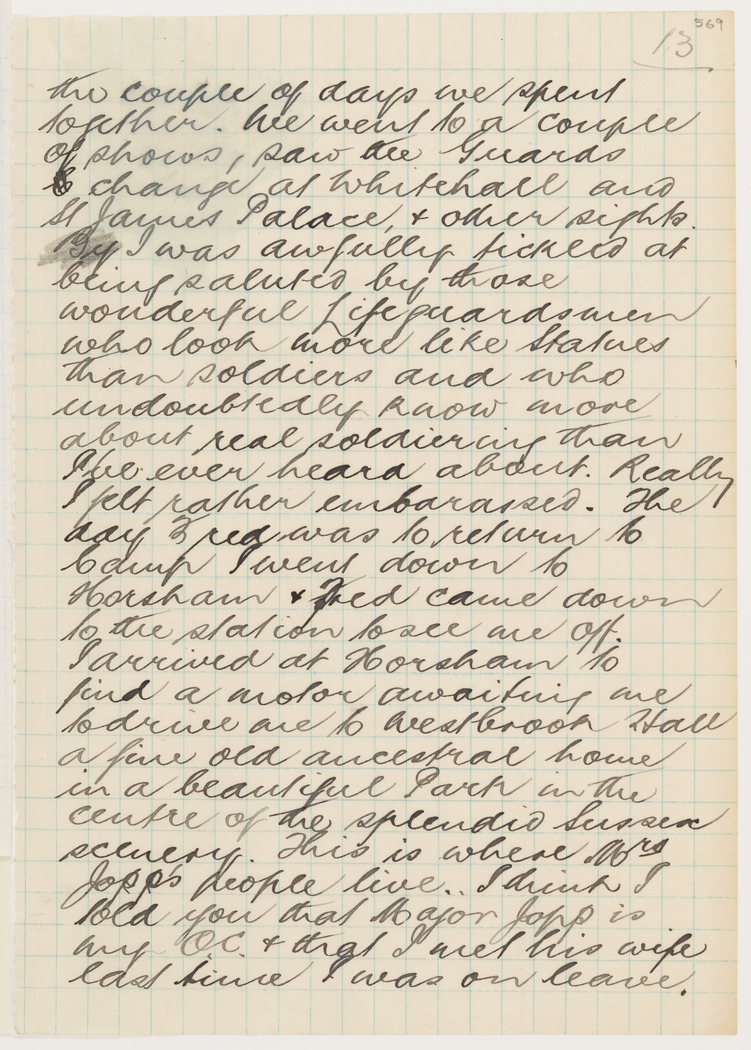 569
13
the couple of days we spent
together. We went to a couple
of shows, saw the Guards
change at Whitehall and
St James Palace, & other sights.
By I was awfully tickled at
being saluted by those
wonderful Lifeguardsmen
who look more like Statues
than soldiers and who
undoubtedly know more
about real soldiering than
I've ever heard about. Really
I felt rather embarassed. The
day Fred was to return to
Camp I went down to
Horsham & Fred came down
to the station to see me off.
I arrived at Horsham to
find a motor awaiting me
to drive me to Westbrook Hall
a fine old ancestral home
in a beautiful Park in the
centre of the splendid Sussex
scenery. This is where Mrs
Jopp's people live.. I think I
told you that Major Jopp is
my O.C. & that I met his wife
last time I was on leave.